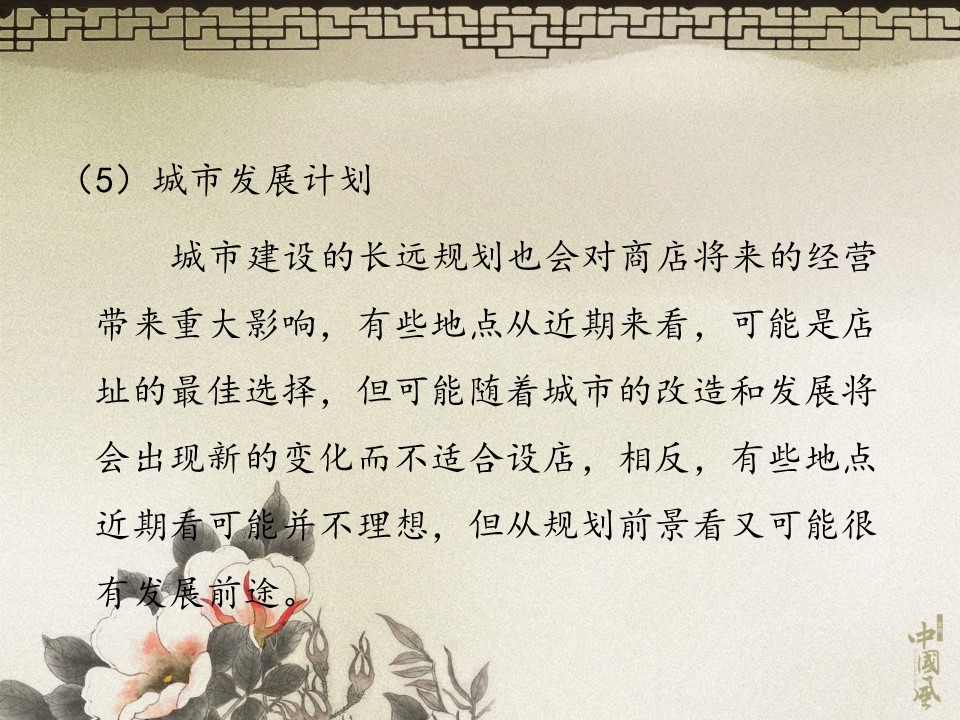 （5）城市发展计划
城市建设的长远规划也会对商店将来的经营
带来重大影响，有些地点从近期来看，可能是店
址的最佳选择，但可能随着城市的改造和发展将
会出现新的变化而不适合设店，相反，有些地点
近期看可能并不理想，但从规划前景看又可能很
有发展前途。
中國风